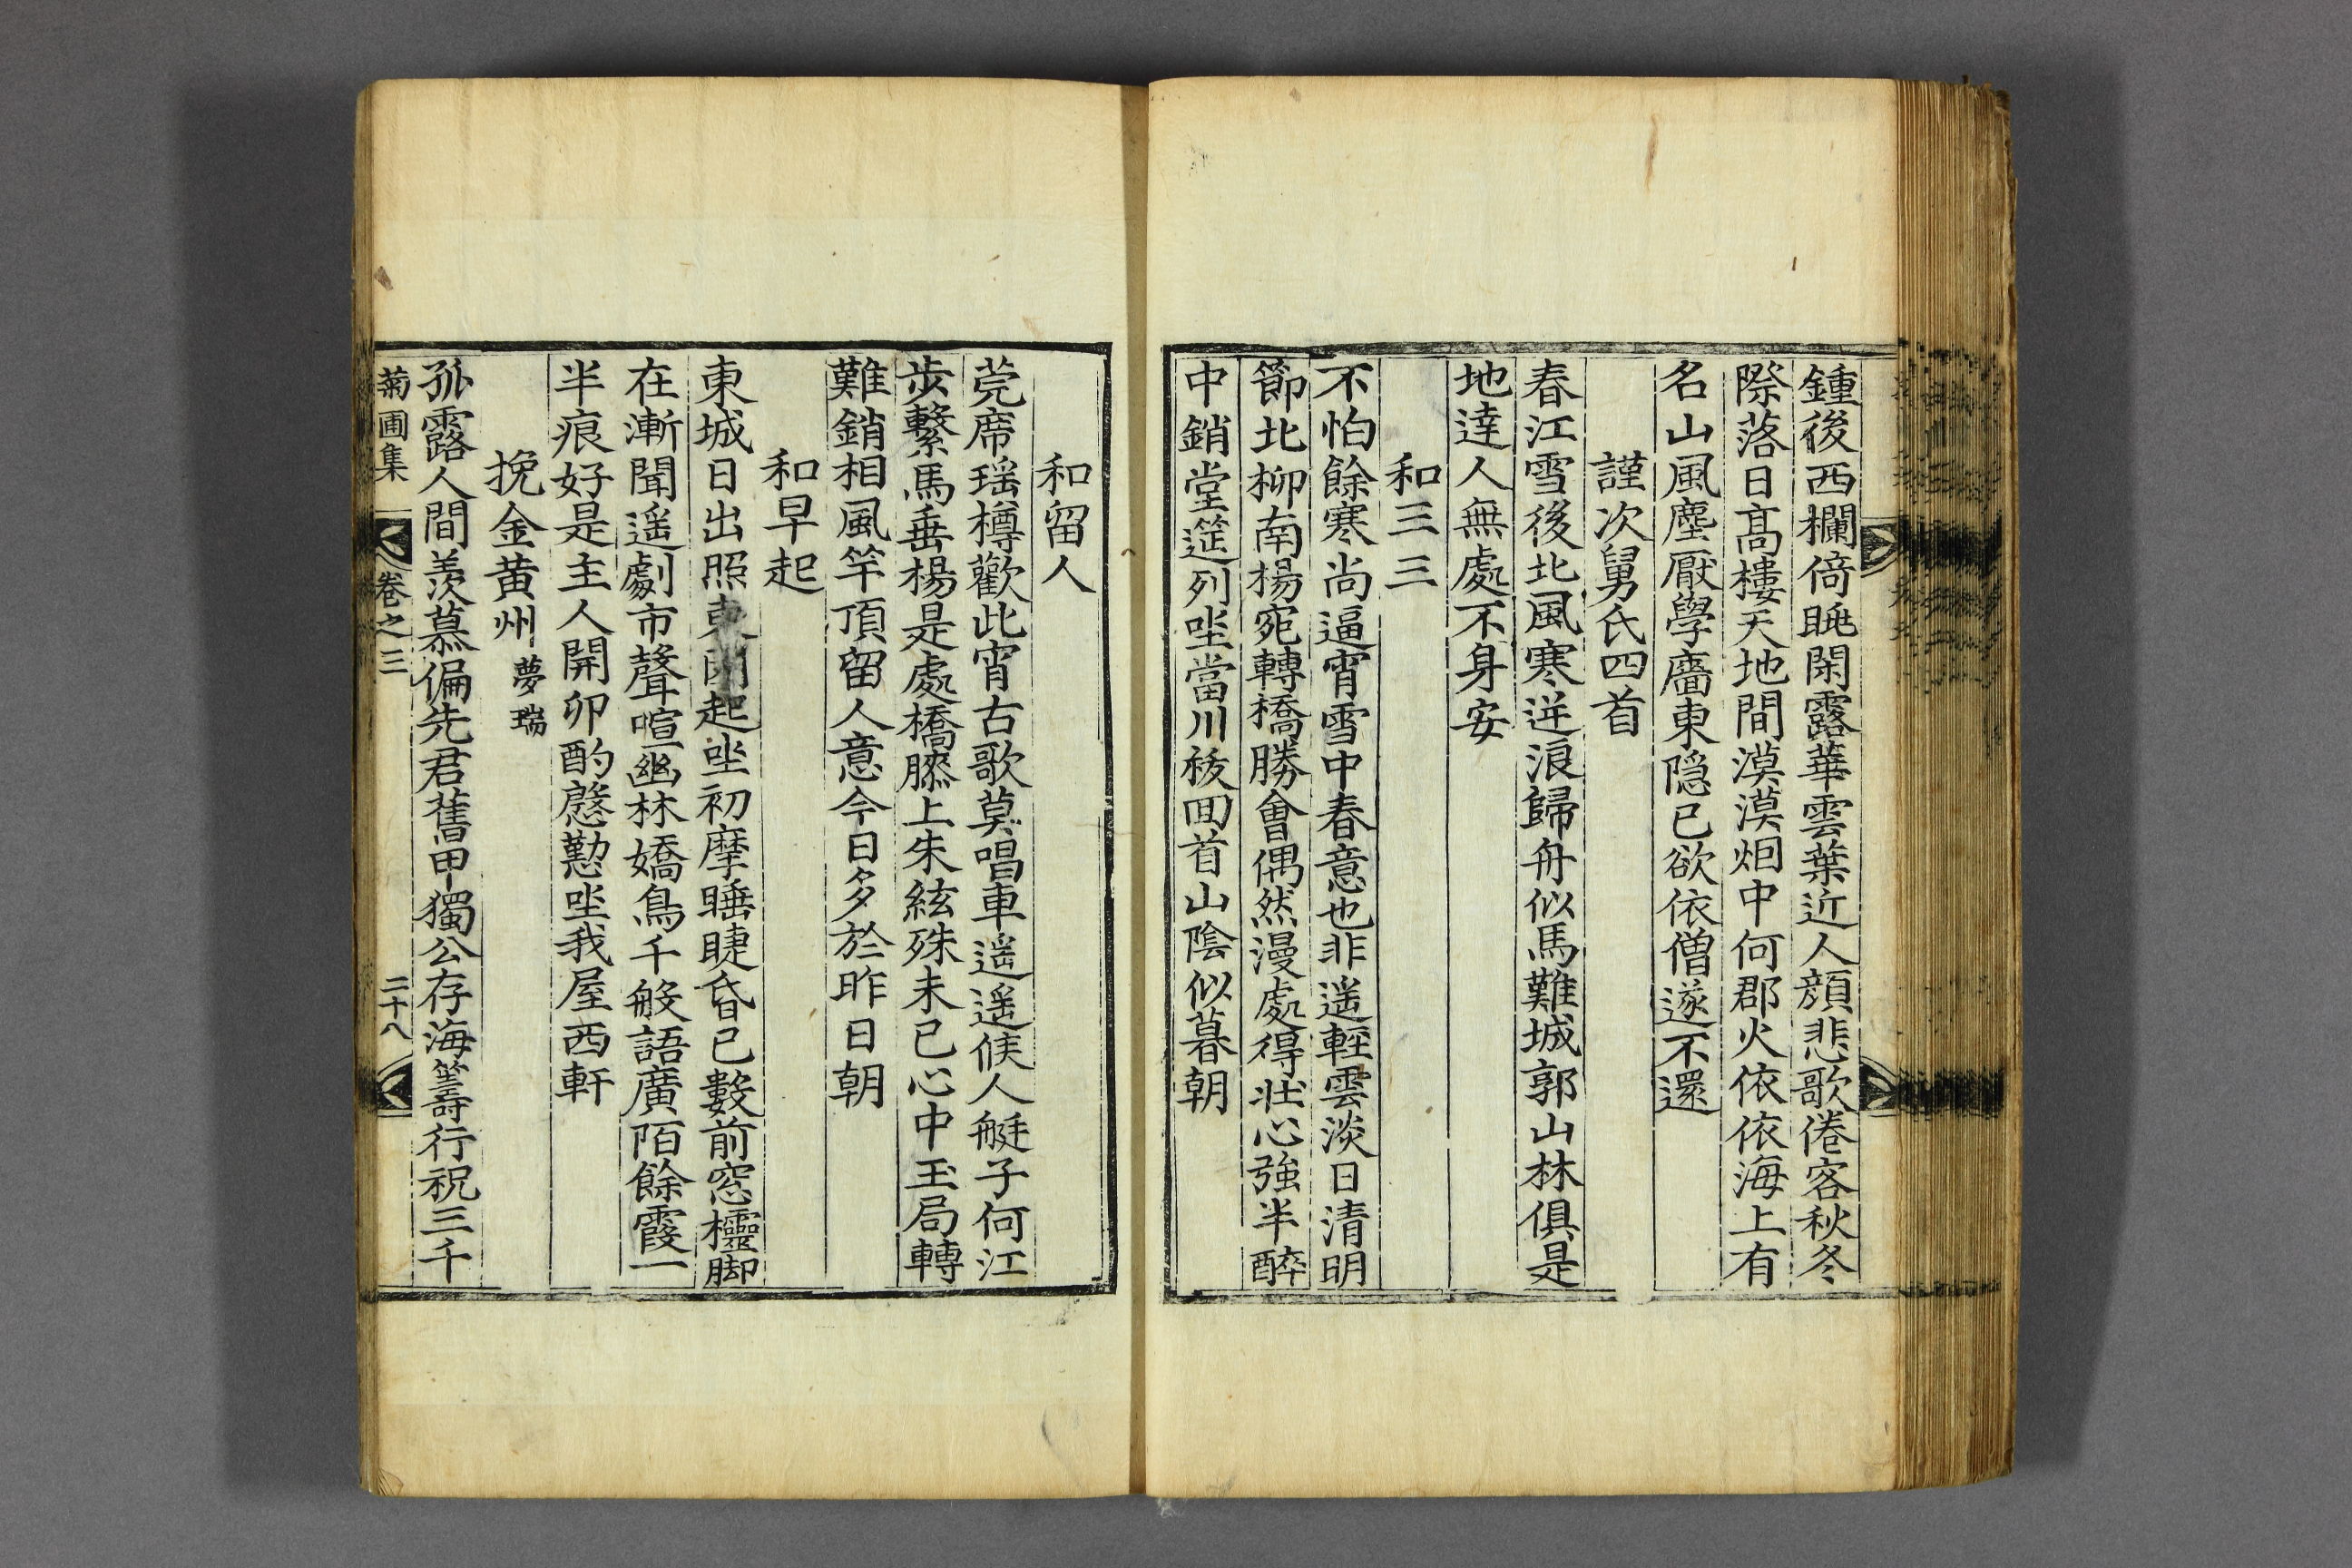 鍾後西欄倚眺閑露華雲葉近人顔悲歌倦客秋冬
際落日髙樓天地間漠漠烟中何郡火依依海上有
名山風塵厭學牆東隠已欲依僧遂不還
謹次舅氏四首
春江雪後北風寒逆浪歸舟似馬難城郭山林俱是
地達人無處不身安
和三三
不怕餘寒尚逼宵雪中春意也非遥輕雲淡日清明
節北柳南楊宛轉橋勝會偶然漫處得壮心強半醉
中銷堂筵列坐當川秡回首山陰似暮朝
和留人
莞席瑶樽歡此宵古歌莫唱車遥遥候人艇子何江
歩繫馬垂楊是處橋膝上朱絃殊未已心中玉局轉
難銷相風竿頂留人意今日多於昨日朝
和早起
東城日出照東関起坐初摩睡睫昏已數前窓欞脚
在漸聞遥劇市聲喧幽林嬌鳥千般語廣陌餘霞一
半痕好是主人開卯酌慇懃坐我屋西軒
挽金黄州 夢瑞
孤露人間羨慕偏先君舊甲獨公存海籌行祝三千
菊圃集 卷之三 二十八